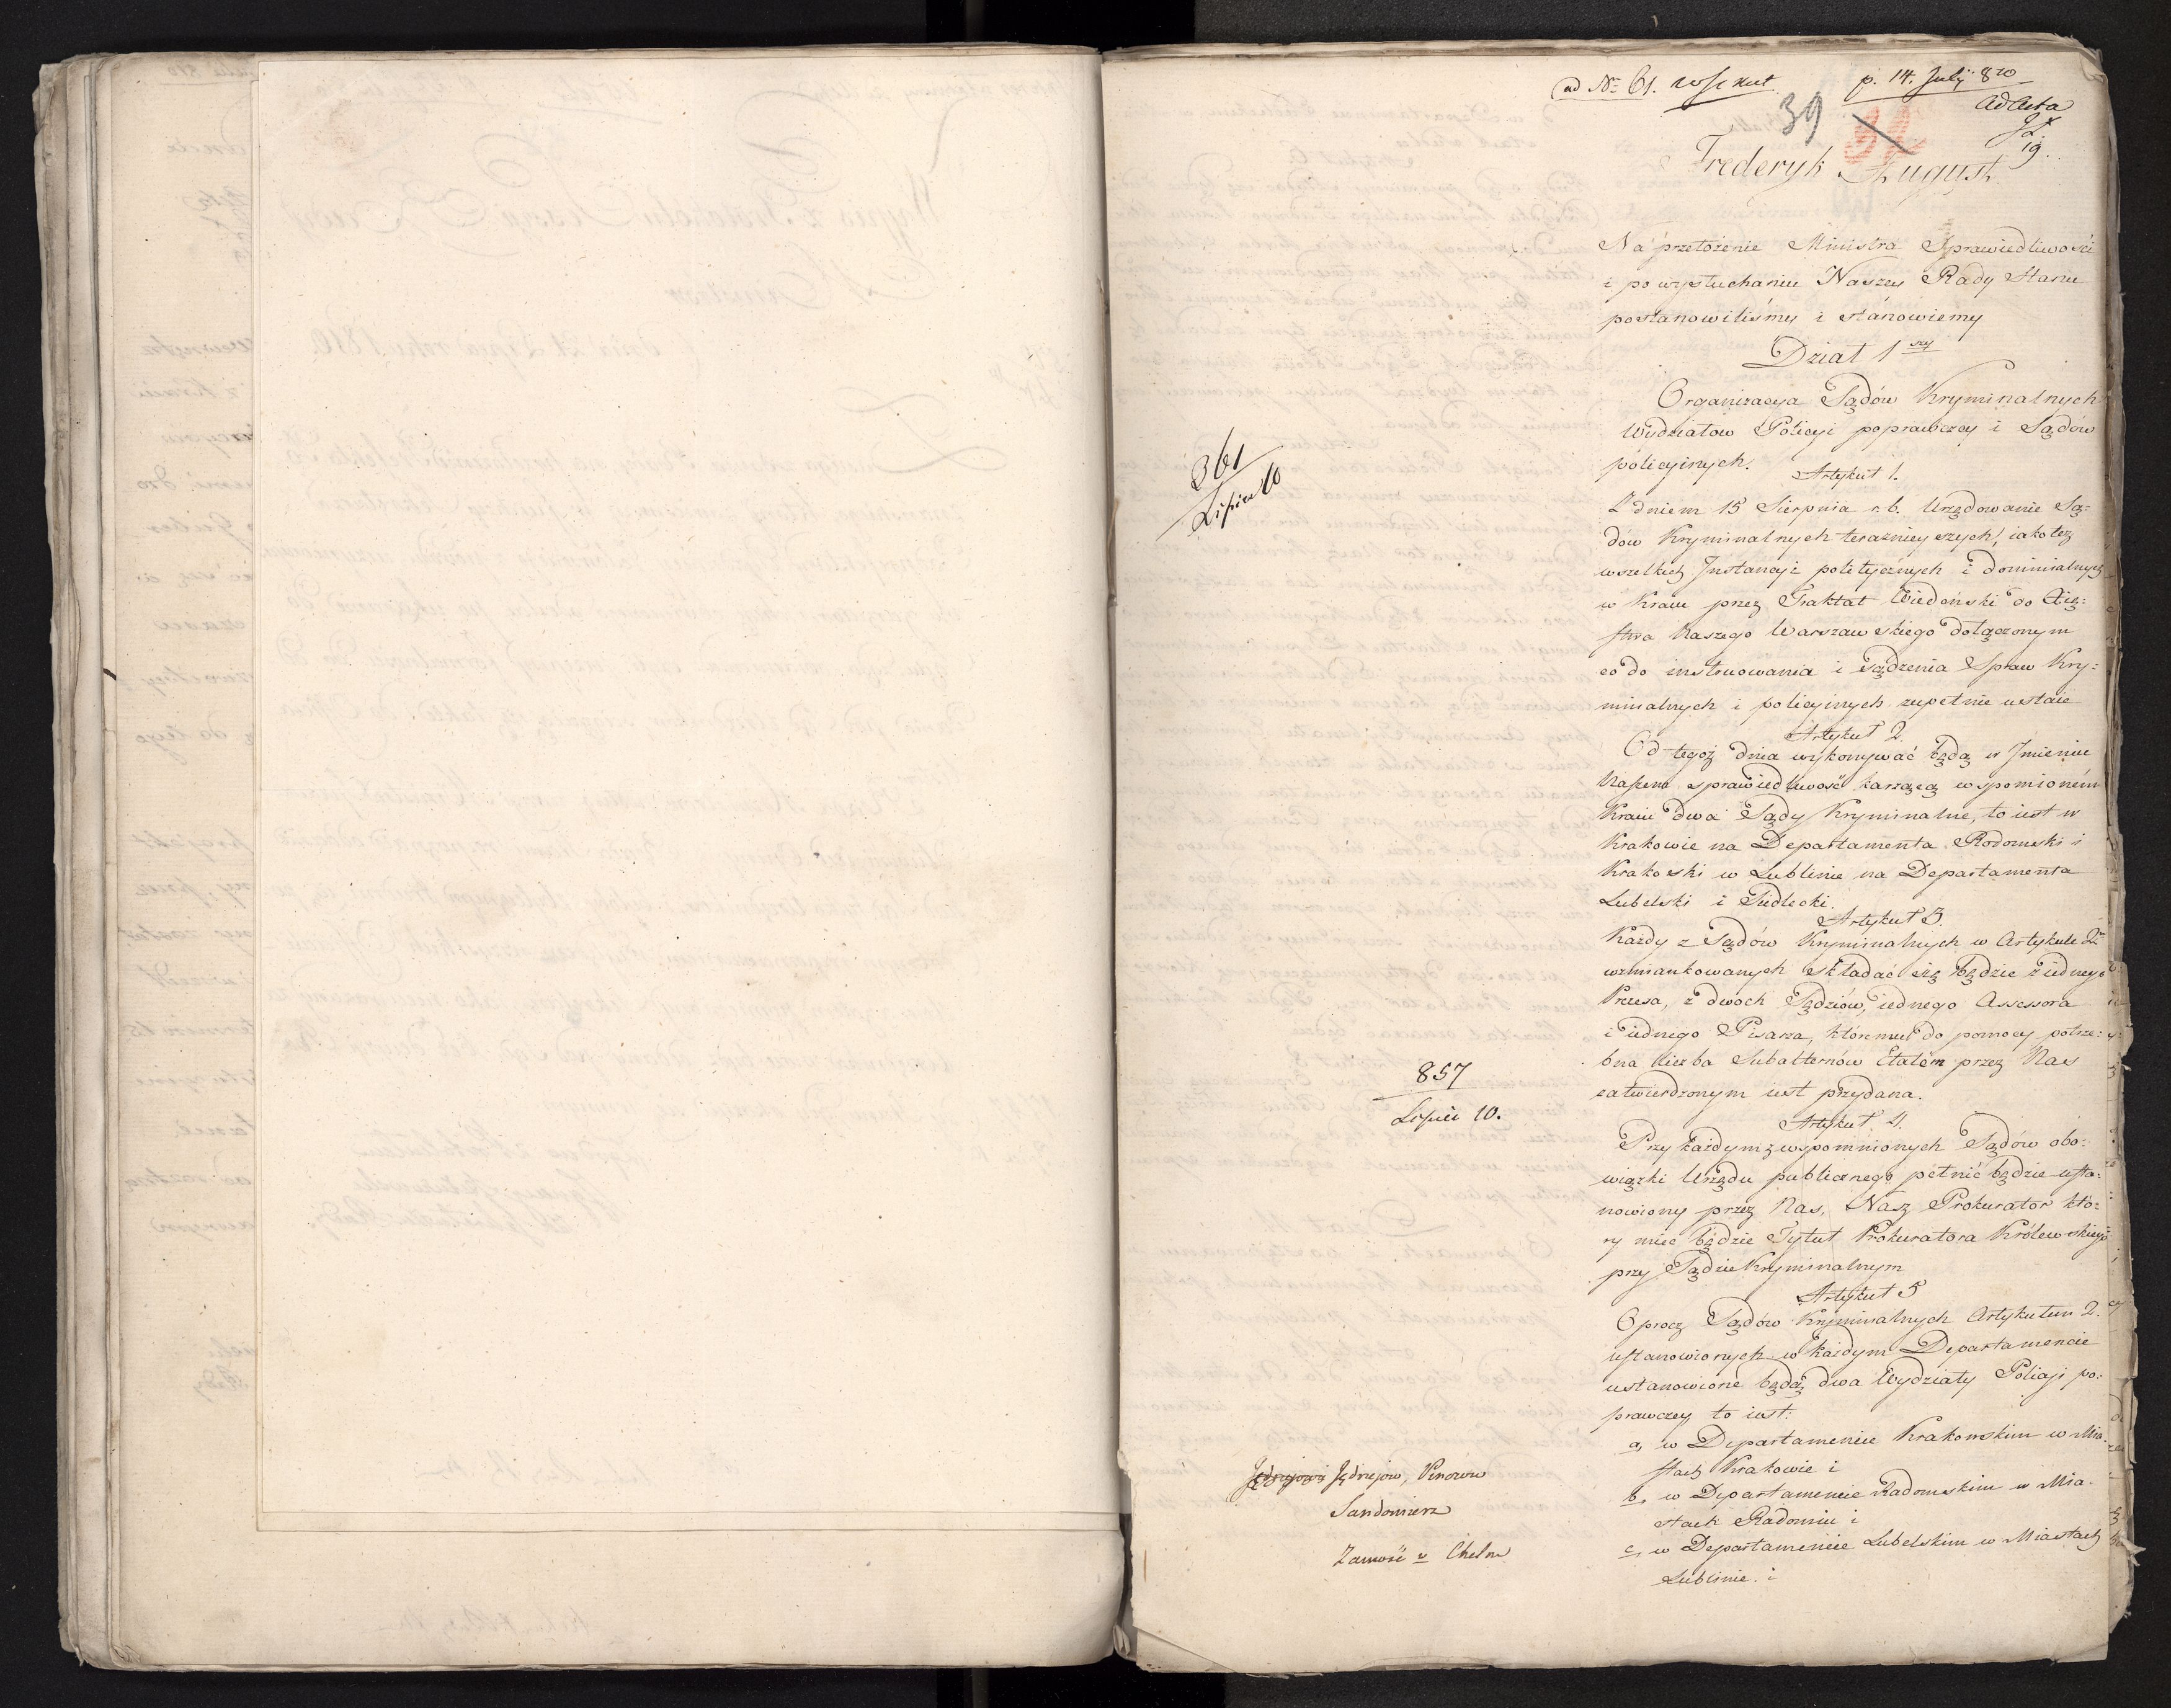 ad No 61.
p. 14. July 810
ad Acta
19.
39
32
Frederyk August
Na przełożenie Ministra Sprawiedliwości
i po wysłuchaniu Naszey Rady Stanu
postanowiliśmy i stanowiemy
Dział 1szy
Organizacya Sądów Kryminalnych
Wydziałow Policyi poprawczey i Sądów
policyinych.
Artykuł 1.
Z dniem 15 Sierpnia r. b. Urzędowanie Są-
dów Kryminalnych teraznieyszych, iako też
wszelkich Instancyi politycznych i dominialnych
w Kraiu przez Traktat Wiedeński do Xię-
stwa Naszego Warszawskiego dołączonym
co do instruowania i sądzenia Spraw Kry-
minalnych i policyinych zupełnie ustaie
Artykuł 2.
Od tegoż dnia wykonywać będą w Imieniu
Naszem sprawiedliwość karzącą wspomionem
Kraiu dwa Sądy Kryminalne, to iest w
Krakowie na Departamenta Radomski i
Krakoski w Lublinie na Departamenta
Lubelski i Siedlecki.
Artykuł 3.
Każdy z Sądów Kryminalnych w Artykule 2
wzmiankowanych składać się będzie z iednego
Prezesa, z dwoch Sędziów, iednego Assessora
i iednego Pisarza, któremu do pomocy potrze-
bna liczba Subalternów Etatem przez Nas
zatwierdzonym iest przydana.
Artykuł 4.
Przy każdym z wspomnionych Sądów obo-
wiązki Urzędu publicznego pełnić będzie usta-
nowiony przez Nas, Nasz Prokurator któ-
ry mieć będzie Tytuł Prokuratora Królewskiego
przy Sądzie Kryminalnym
Artykuł 5
Oprocz Sądów Kryminalnych Artykułem 2.
ustanowionych w każdym Departamencie
ustanowione będą dwa Wydziały Policyi po-
prawczey to iest:
a, w Departamencie Krakowskim w Mia-
stach Krakowie i
b, w Departamencie Radomskim w Mia-
stach Radomiu i
c, w Departamencie Lubelskim w Miastach
Lublinie. i
361
Lipca 10
857
Lipca 10.
Jędrzejowi Jędrzejow, Pinczow
Sandomierz
Zamość v Chełm